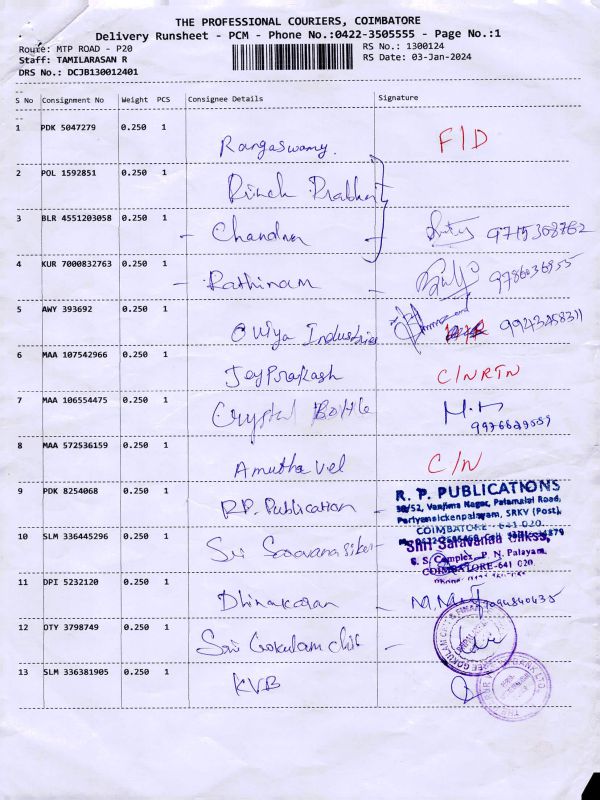 THE PROFESSIONAL COURIERS, COIMBATORE
Delivery Runsheet - PCM - Phone No.:0422-3505555 - Page No.:1
Route: MTP ROAD - P20 RS No.: 1300124
Staff: TAMILARASAN R RS Date: 03-Jan-2024
DRS No.: DCJB130012401
S No Consignment No Weight PCS Consignee Details Signature
1 PDK 5047279 0.250 1 Rangaswamy. F/D
2 POL 1592851 0.250 1 Prabhu
3 BLR 4551203058 0.250 1 - Chandran
4 KUR 7000832763 0.250 1 - Rathinam 9786036955
5 AWY 393692 0.250 1 Oviya Industries
6 MAA 107542966 0.250 1 JeyPrakash C/NRTN
7 MAA 106554475 0.250 1 Crystal Bottle
8 MAA 572536159 0.250 1 Amutha vel C/N
9 PDK 8254068 0.250 1 RP. Publication - R. P. PUBLICATIONS
Vanjima Nagar, Palamalai Road,
Periyanaickenpalayam, SRKV (Post),
COIMBATORE - 641 020.
10 SLM 336445296 0.250 1 Sri Saravana silks - Shri Saravanaa Silks,
G. S. Complex, P. N. Palayam,
COIMBATORE-641 020.
11 DPI 5232120 0.250 1 Dhinakaran -
12 OTY 3798749 0.250 1 Sri Gokulam chit -
13 SLM 336381905 0.250 1 KVB